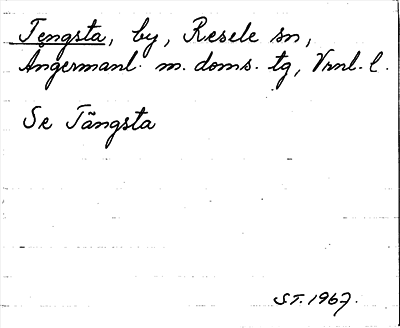 Tengsta, by, Resele sn,
Ångermanl. m. doms. tg, Vrnl. l.
Se Tängsta
ST. 1967.